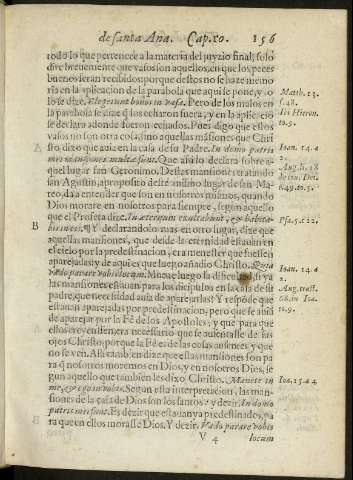 de santa Ana. Cap. 10. 156
todo lo que pertenece a la materia del juyzio final, solo
dire breuemente que vasos son aquellos, en que los peces
buenos seran recibidos: porque destos no se haze memo
ria en la aplicacion de la parabola que aqui se pone, y so
lo se dize. Elegerunt bonos in vasa. Pero de los malos en
la parabola se dize q̃ los echaron fuera, y en la aplicacio
se declara adonde fueron echados. Pues digo que estos
vasos no son otra cosa, sino aquellas mãsiones que Chri
sto dixo que auia en la casa de su Padre. In domo patris
mei mansiones multæ sunt. Que assi lo declara sobre a-
quel lugar san Geronimo. Destas mansiones tratando
san Agustin, a proposito deste mismo lugar de san Ma-
teo, da a entender que son en nosotros mismos, quando
Dios morare en nosotros para siempre, segun aquello
que el Profeta dize. In æternum exultabunt, & habita-
bis in eis. ¶ Y declarandolo mas en otro lugar, dize que
aquellas mansiones, que desde la eternidad estauan en
el cielo por la predestinacion, era menester que fuessen
aparejadas: y de aqui es que luego añadio Christo. Quia
vado parare vobis locum. Mueue luego la dificultad, si ya
las mansiones estauan para los dicipulos en la casa de su
padre, que necessidad auia de aparejarlas? Y respõde que
estauan aparejadas por predestinacion, pero que se auiã
de aparejar por la Fè de los Apostoles: y que para que
ellos creyessen, era necessario que se ausentasse de los
ojos Christo, porque la Fè es de las cosas ausentes, y que
no se ven. Alli tambien dize que estas mansiones son pa
ra q̃ nosotros moremos en Dios, y en nosotros Dios, se
gun aquello que tambien les dixo Christo. Manete in
me, & ego in vobis. Segun esta interpretacion, las man-
siones de la casa de Dios son los santos: y dezir. In domo
patris mei sunt. Es dezir que estauan ya predestinados, pa
ra que en ellos morasse Dios. Y dezir. Vado parare vobis
V 4 locum
Matth. 13.
f. 48.
Ibi Hieron.
to. 9.
Ioan. 14. a
2.
Psa. 5. c 12.
Ioan. 14. a
2.
Aug. tract.
68. in Ioa.
to. 9.
Ioa. 15. a 4
A
B